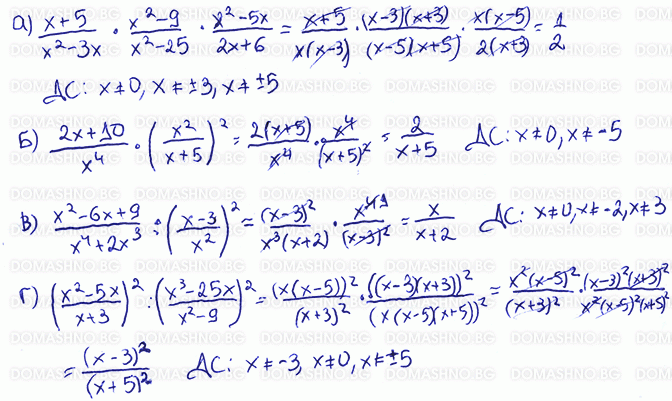 а) (x+5)/(x²-3x) · (x²-9)/(x²-25) · (x²-5x)/(2x+6) = (x+5)/(x(x-3)) · ((x-3)(x+3))/((x-5)(x+5)) · (x(x-5))/(2(x+3)) = 1/2
ДС: x≠0, x≠±3, x≠±5
б) (2x+10)/x⁴ · (x²/(x+5))² = (2(x+5))/x⁴ · x⁴/(x+5)² = 2/(x+5) ДС: x≠0, x≠-5
в) (x²-6x+9)/(x⁴+2x³) : ((x-3)/x²)² = (x-3)²/(x³(x+2)) · x⁴/(x-3)² = x/(x+2) ДС: x≠0, x≠-2, x≠3
г) ((x²-5x)/(x+3))² : ((x³-25x)/(x²-9))² = (x(x-5))²/(x+3)² · ((x-3)(x+3))²/(x(x-5)(x+5))² = (x²(x-5)²)/(x+3)² · ((x-3)²(x+3)²)/(x²(x-5)²(x+5)²)
= (x-3)²/(x+5)² ДС: x≠-3, x≠0, x≠±5
DOMASHNO.BG